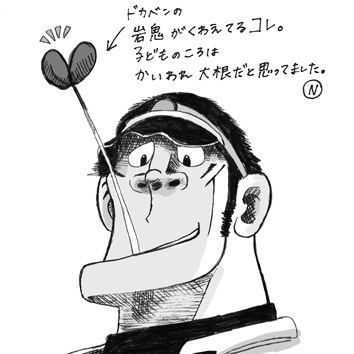 ドカベンの
岩鬼がくわえてるコレ。
子どものころは
かいわれ大根だと思ってました。
N